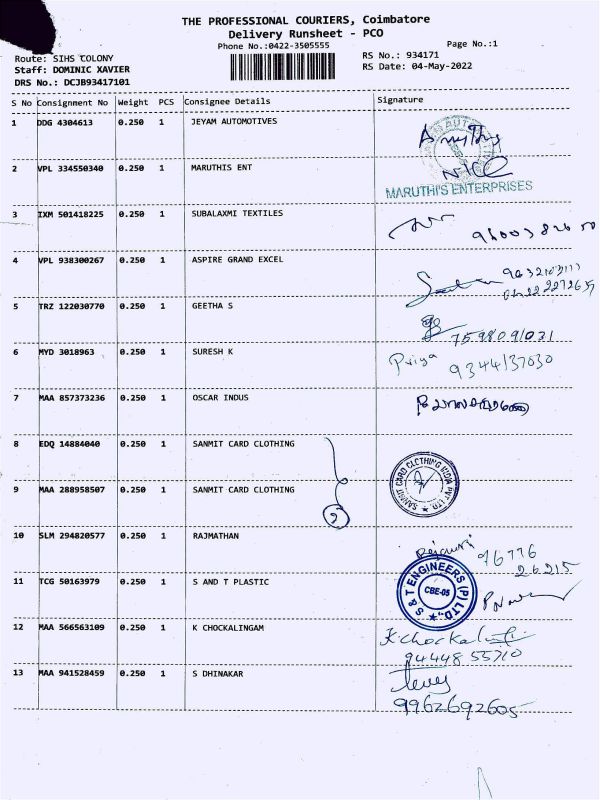 THE PROFESSIONAL COURIERS, Coimbatore
Delivery Runsheet - PCO
Phone No.:0422-3505555
Page No.:1
Route: SIHS COLONY
Staff: DOMINIC XAVIER
DRS No.: DCJB93417101
RS No.: 934171
RS Date: 04-May-2022
S No Consignment No Weight PCS Consignee Details Signature
1 DDG 4304613 0.250 1 JEYAM AUTOMOTIVES
2 VPL 334550340 0.250 1 MARUTHIS ENT
MARUTHI'S ENTERPRISES
3 IXM 501418225 0.250 1 SUBALAXMI TEXTILES
4 VPL 938300267 0.250 1 ASPIRE GRAND EXCEL
5 TRZ 122030770 0.250 1 GEETHA S
7598091031
6 MYD 3018963 0.250 1 SURESH K
Priya
9344137030
7 MAA 857373236 0.250 1 OSCAR INDUS
8 EDQ 14884040 0.250 1 SANMIT CARD CLOTHING
SANMIT CARD CLOTHING INDIA PVT LTD.
9 MAA 288958507 0.250 1 SANMIT CARD CLOTHING
2
10 SLM 294820577 0.250 1 RAJMATHAN
96776
26215
11 TCG 50163979 0.250 1 S AND T PLASTIC
S & T ENGINEERS (P) LTD.,
CBE-05
12 MAA 566563109 0.250 1 K CHOCKALINGAM
94448 55710
13 MAA 941528459 0.250 1 S DHINAKAR
9962692605